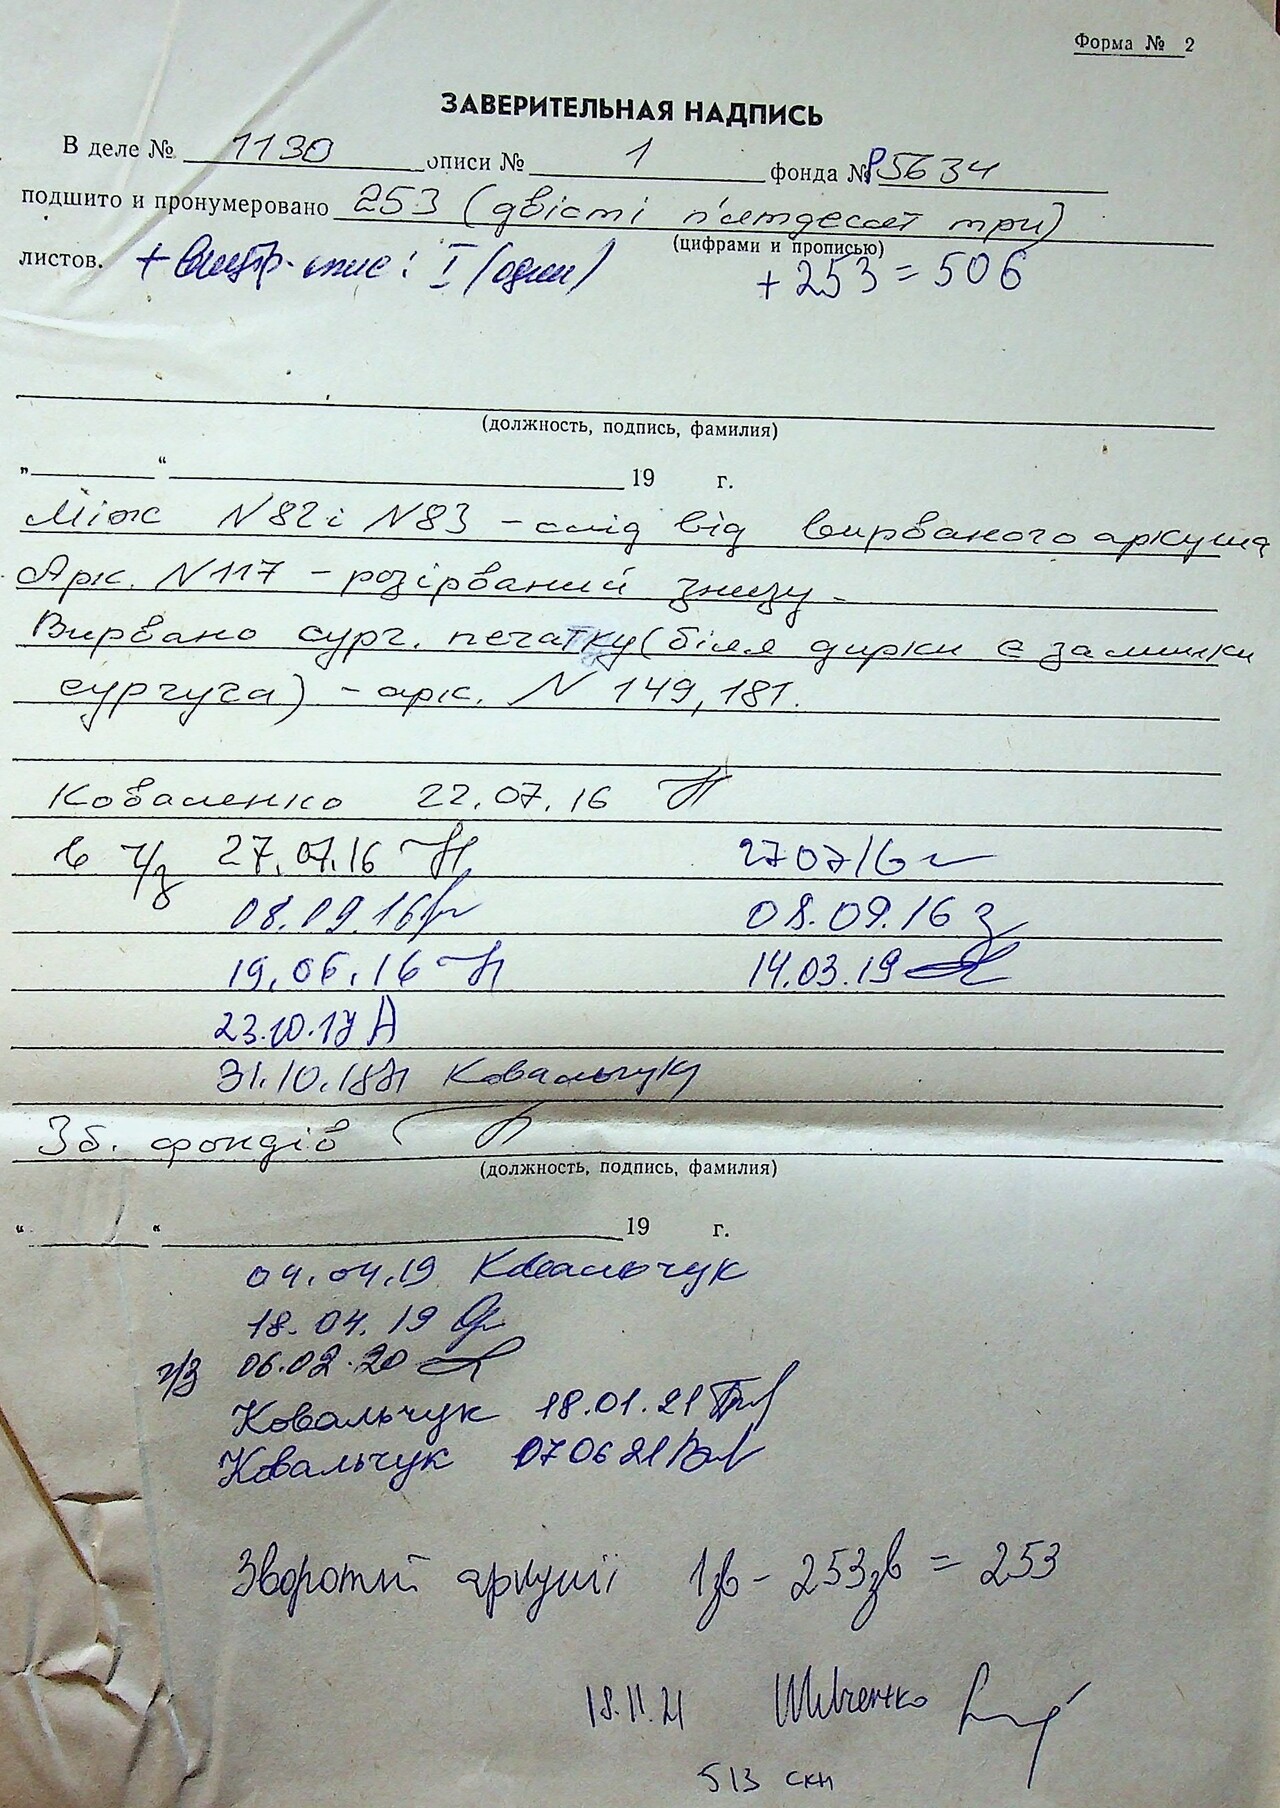 Форма № 2
ЗАВЕРИТЕЛЬНАЯ НАДПИСЬ
В деле № 1130 описи № 1 фонда № Р5634
подшито и пронумеровано 253 (двісті п'ятдесят три)
(цифрами и прописью)
листов. + внутр. опис: I (один) + 253 = 506
(должность, подпись, фамилия)
„ “ 19 г.
Між N82 і N83 - слід від вирваного аркуша
Арк. N117 - розірваний знизу.
Вирвано сург. печатку (біля дирки є залишки
сургуча) - арк. N 149, 181.
Коваленко 22.07.16
в ч/з 27.07.16 270716
08.09.16 08.09.16
19.06.16 14.03.19
23.10.17
31.10.18 Ковальчук
Зб. фондів
(должность, подпись, фамилия)
“ “ 19 г.
04.04.19 Ковальчук
18.04.19
ч/з 06.02.20
Ковальчук 18.01.21
Ковальчук 070621
Зворотні аркуші 1зв - 253зв = 253
18.11.21 Шевченко
513 скн